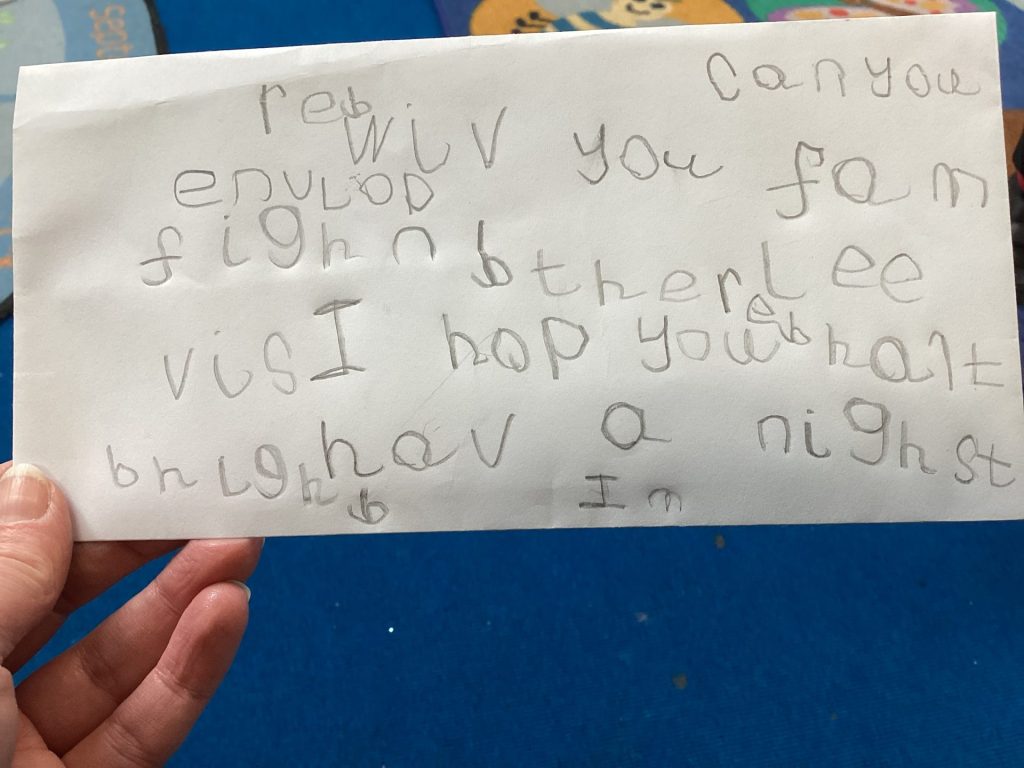 reb canyou
wiv you fam
envlop
fighn btherlee
vis I hop you eb halt
bnigh hav a nighst
b Im